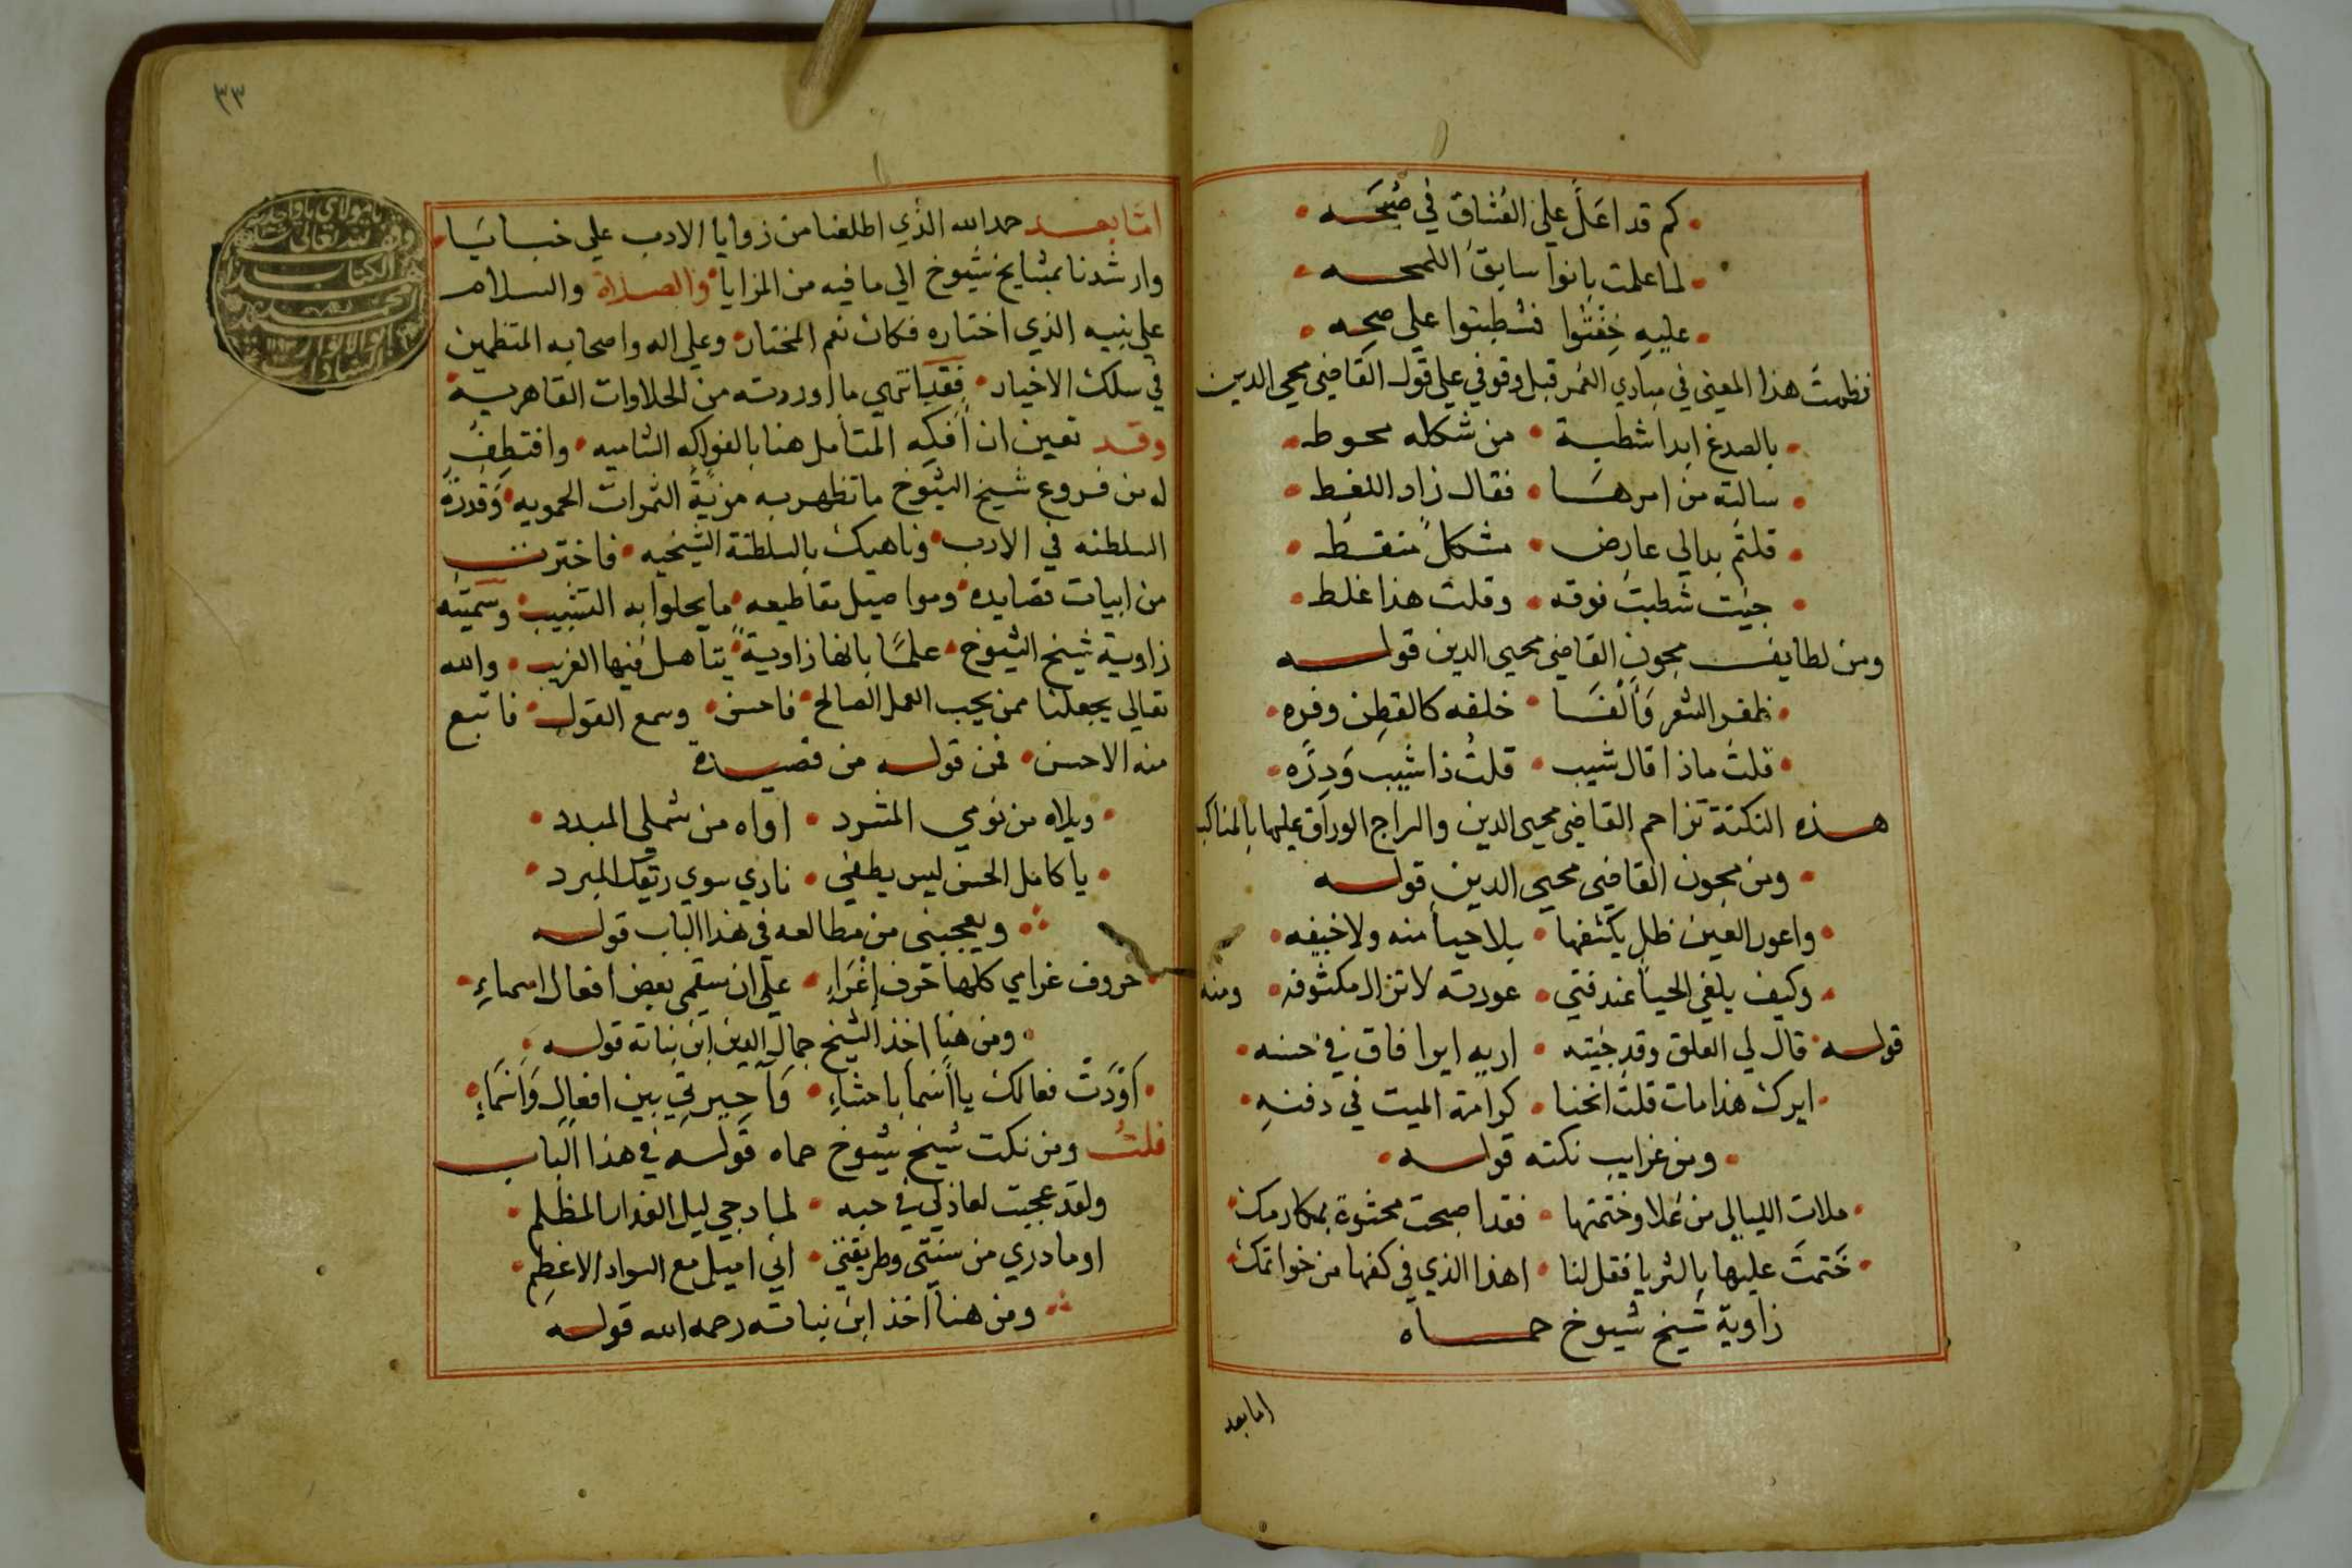 كم قد اعَلَّ علي العُشاق في صُبحَه
لما علمت بانوا سابق اللمحه
عليهِ خِفْتُوا فشطبتوا علي صحه
نظمت هذا المعنى في مبادي العمر قبل وقوفي علي قول القاضي محيي الدين
بالصدغ ابدا شطبة • من شكله محوط
سالته من امرهَا • فقال زاد اللغط
قلتم بدا لي عارض • مشكلٌ منقط
جيت شطبت فوقه • وقلت هذا غلط
ومن لطايف مجون القاضي محيي الدين قوله
ظفر الشعر وَالْفَا • خلفه كالقطن وفره
قلت ماذا قال شيب • قلت ذا شيب وَدِرَّه
هذه النكتة تزاحم القاضي محيي الدين والسراج الوراق عليها بالمناكب
ومن مجون القاضي محيي الدين قوله
واعور العين ظل يكشفها • بلا حيا منه ولا خيفه
وكيف يلفي الحيا عند فتي • عورته لا تزال مكشوفه ومنه
قوله قال لي العلق وقد جئته • اريه ايرا فاق في حسنه
ايرك هذا مات قلت انحنا • كرامة الميت في دفنهِ
ومن غرايب نكته قوله
ملات الليالي من عُلا وختمتها • فقد اصبحت محشوة بمكارمك
خَتمتَ عليها بالثريا فقل لنا • اهذا الذي في كفها من خواتمك
زاوية شيخ شيوخ حماه
اما بعد
٣٣
امَّا بعد حمد الله الذي اطلعنا من زوايا الادب علي خبايا
وارشدنا بمشايخ شيوخ الي ما فيه من المزايا والصلاة والسلام
علي نبيه الذي اختاره فكان نعم المختار وعلي اله واصحابه المنتظمين
في سلك الاخيار • فقد انتهي ما اوردته من الحلاوات القاهرية
وقد تعين ان أفَكِه المتأمل هنا بالفواكه الشاميه • واقتطف
له من فروع شيخ الشيوخ ما تظهر به مزيّةُ الثمرات الحمويه وَقدرة
السلطنه في الادب • وناهيك بالسلطنة الشيخيه • فاخترت
من ابيات قصايده ومواصيل مقاطيعه ما يحلوا به التشبيب وسميته
زاوية شيخ الشيوخ • علمًا بانها زاوية يتاهل فيها الغريب • والله
تعالي يجعلنا ممن يحب العمل الصالح فاحسن وسمع القول فاتبع
منه الاحسن • فمن قوله من قصيدة
ويلاه من نومي المشرد • اواه من شملي المبدد
يا كامل الحسن ليس يطفي • ناري سوي ريقك المبرد
ويعجبني من مطالعه في هذا الباب قوله
حروف غرامي كلها حرف إغرَاءِ • علي ان سقمي بعض افعال اسماءِ
ومن هنا اخذ الشيخ جمال الدين ابن نباته قوله
أوْدَتْ فعالك يا أسما باحشاءِ • وَاحيرتي بين افعال وَاسمَاءِ
قلتُ ومن نكت شيخ شيوخ حماه قوله في هذا الباب
ولقد عجبت لعاذلي في حبه • لما دجي ليل العذار المظلم
اوما دري من سنتي وطريقتي • اني اميل مع السواد الاعظم
ومن هنا اخذ ابن نباته رحمه الله قوله